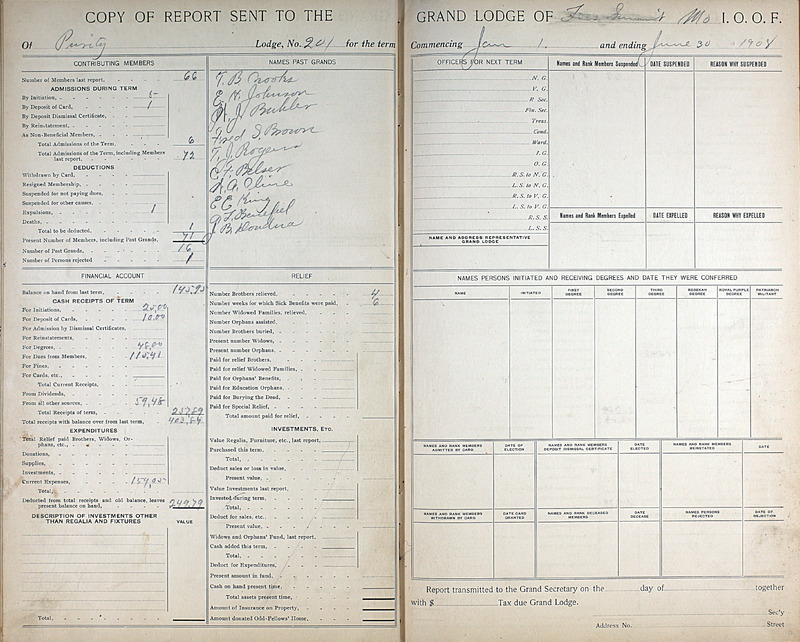 COPY OF REPORT SENT TO THE
Of Purity Lodge, No. 201 for the term
CONTRIBUTING MEMBERS
Number of Members last report, 66
ADMISSIONS DURING TERM
By Initiation, 5
By Deposit of Card, 1
By Deposit Dismissal Certificate,
By Reinstatement,
As Non-Beneficial Members,
Total Admissions of the Term, 6
Total Admissions of the Term, including Members last report, 72
DEDUCTIONS
Withdrawn by Card,
Resigned Membership,
Suspended for not paying dues,
Suspended for other causes,
Expulsions, 1
Deaths,
Total to be deducted, 1
Present Number of Members, including Past Grands, 71
Number of Past Grands, 16
Number of Persons rejected 1
NAMES PAST GRANDS
T. B. Crooks
E. H. Johnson
H. J. Buhler
Fred S. Brown
T. J. Rogers
C. F. Belser
H. A. Cline
E E King
FINANCIAL ACCOUNT
Balance on hand from last term, 145.95
CASH RECEIPTS OF TERM
For Initiations, 25.00
For Deposit of Cards, 10.00
For Admission by Dismissal Certificates,
For Reinstatements,
For Degrees, 48.00
For Dues from Members, 115.41
For Fines,
For Cards, etc.,
Total Current Receipts,
From Dividends,
From all other sources, 59.48
Total Receipts of term, 257.89
Total receipts with balance over from last term, 403.84
EXPENDITURES
Total Relief paid Brothers, Widows, Orphans, etc.,
Donations,
Supplies,
Investments,
Current Expenses, 154.05
Total,
Deducted from total receipts and old balance, leaves present balance on hand, 249.79
DESCRIPTION OF INVESTMENTS OTHER THAN REGALIA AND FIXTURES
VALUE
Total,
RELIEF
Number Brothers relieved, 4
Number weeks for which Sick Benefits were paid, 6
Number Widowed Families, relieved,
Number Orphans assisted,
Number Brothers buried,
Present number Widows,
Present number Orphans,
Paid for relief Brothers,
Paid for relief Widowed Families,
Paid for Orphans' Benefits,
Paid for Education Orphans,
Paid for Burying the Dead,
Paid for Special Relief,
Total amount paid for relief,
INVESTMENTS, ETC.
Value Regalia, Furniture, etc., last report,
Purchased this term,
Total,
Deduct sales or loss in value,
Present value,
Value Investments last report,
Invested during term,
Total,
Deduct for sales, etc.,
Present value,
Widows and Orphans' Fund, last report,
Cash added this term,
Total,
Deduct for Expenditures,
Present amount in fund,
Cash on hand present time,
Total assets present time,
Amount of Insurance on Property,
Amount donated Odd-Fellows' Home,
GRAND LODGE OF Mo I. O. O. F.
Commencing Jan 1. and ending June 30 1908
OFFICERS FOR NEXT TERM
N. G.
V. G.
R Sec.
Fin. Sec.
Treas.
Cond.
Ward.
I. G.
O. G.
R. S. to N. G.
L. S. to N. G.
R. S. to V. G.
L. S. to V. G.
R. S. S.
L. S. S.
NAME AND ADDRESS REPRESENTATIVE GRAND LODGE
Names and Rank Members Suspended
DATE SUSPENDED
REASON WHY SUSPENDED
Names and Rank Members Expelled
DATE EXPELLED
REASON WHY EXPELLED
NAMES PERSONS INITIATED AND RECEIVING DEGREES AND DATE THEY WERE CONFERRED
NAME
INITIATED
FIRST DEGREE
SECOND DEGREE
THIRD DEGREE
REBEKAH DEGREE
ROYAL PURPLE DEGREE
PATRIARCH MILITANT
NAMES AND RANK MEMBERS ADMITTED BY CARD
DATE OF ELECTION
NAMES AND RANK MEMBERS DEPOSIT DISMISSAL CERTIFICATE
DATE ELECTED
NAMES AND RANK MEMBERS REINSTATED
DATE
NAMES AND RANK MEMBERS WITHDRAWN BY CARD
DATE CARD GRANTED
NAMES AND RANK DECEASED MEMBERS
DATE DECEASE
NAMES PERSONS REJECTED
DATE OF REJECTION
Report transmitted to the Grand Secretary on the day of together
with $ Tax due Grand Lodge.
Sec'y
Address No. Street